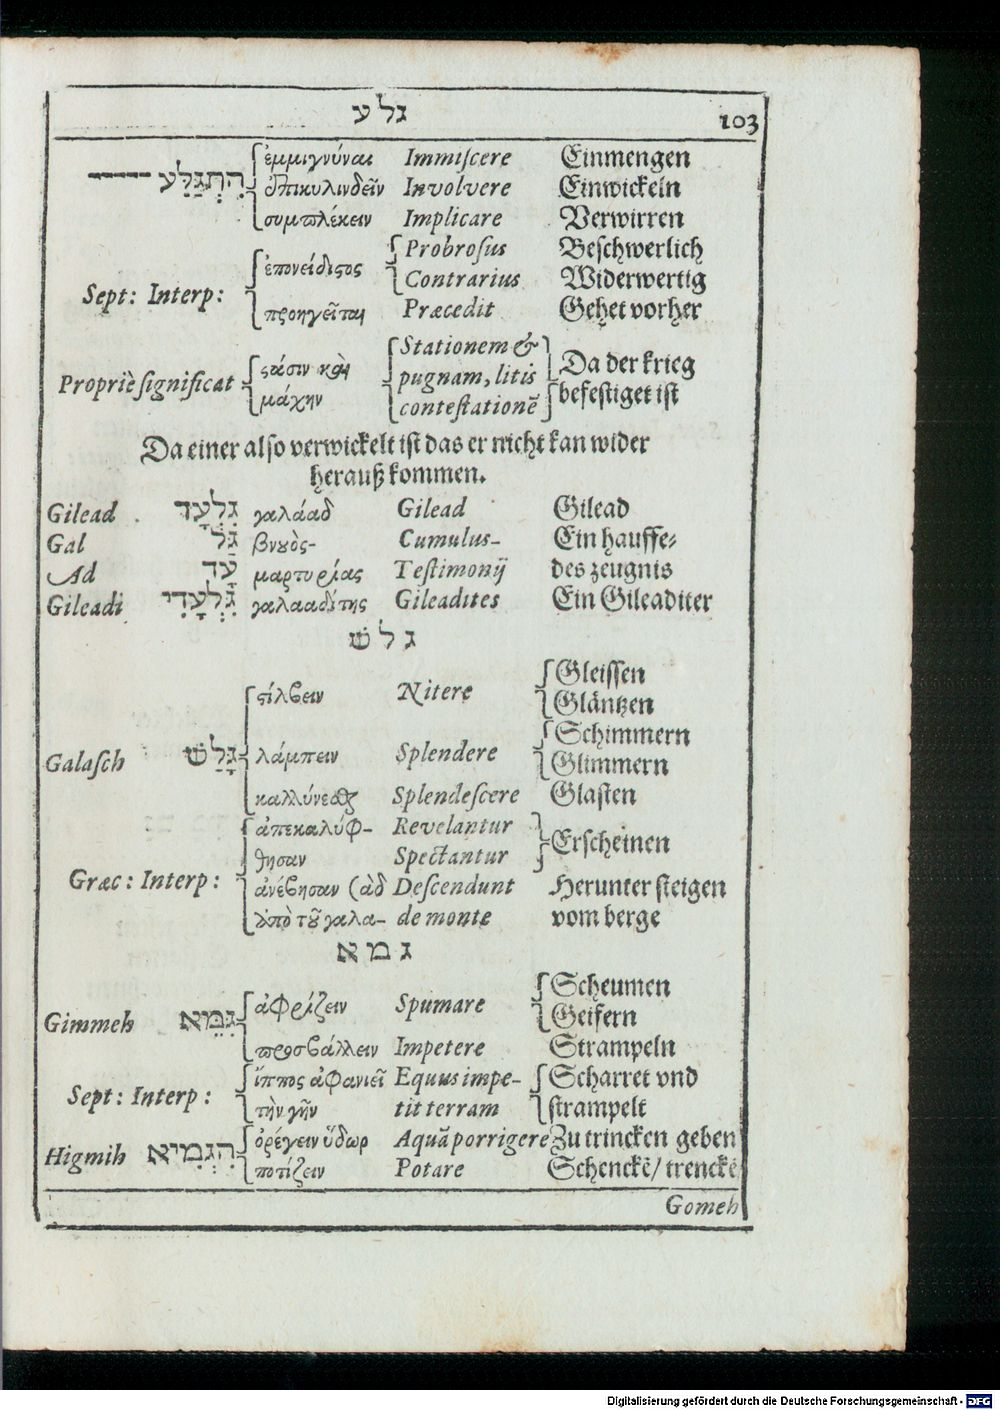 גלע 103
הִתְגַּלַּע ἐμμιγνύναι Immiſcere Einmengen
ἐπικυλινδεῖν Involvere Einwickeln
συμπλέκειν Implicare Verwirren
Sept: Interp: ἐπονείδιστος Probroſus Beſchwerlich
Contrarius Widerwertig
προηγεῖται Præcedit Gehet vorher
Propriè ſignificat στάσιν καὶ Stationem & Da der krieg
μάχην pugnam, litis befeſtiget iſt
conteſtationẽ
Da einer alſo verwickelt iſt das er nicht kan wider
herauß kommen.
Gilead גִלְעָד γαλάαδ Gilead Gilead
Gal גַּל βουὸς- Cumulus- Ein hauffe-
Ad עָד μαρτυρίας Teſtimonij des zeugnis
Gileadi גִּלְעָדִי γαλααδίτης Gileadites Ein Gileaditer
ג ל שׁ
Galaſch גָּלַשׁ στίλβειν Nitere Gleiſſen
Gläntzen
λάμπειν Splendere Schimmern
Glimmern
καλλύνεσθαι Splendeſcere Glaſten
Græc: Interp: ἀπεκαλύφ- Revelantur Erſcheinen
θησαν Spectantur
ἀνέβησαν (ὰδ Deſcendunt Herunter ſteigen
ἀπὸ τοῦ γαλα- de monte vom berge
ג מ א
Gimmeh גִּמֵּא ἀφρίζειν Spumare Scheumen
Geifern
προσβάλλειν Impetere Strampeln
Sept: Interp: ἵππος ἀφανιεῖ Equus impe- Scharret vnd
τὴν γῆν tit terram ſtrampelt
Higmih הִגְמִיא ὀρέγειν ὕδωρ Aquã porrigere Zu trincken geben
ποτίζειν Potare Schenckẽ/ trenckẽ
Gomeh
Digitalisierung gefördert durch die Deutsche Forschungsgemeinschaft - DFG